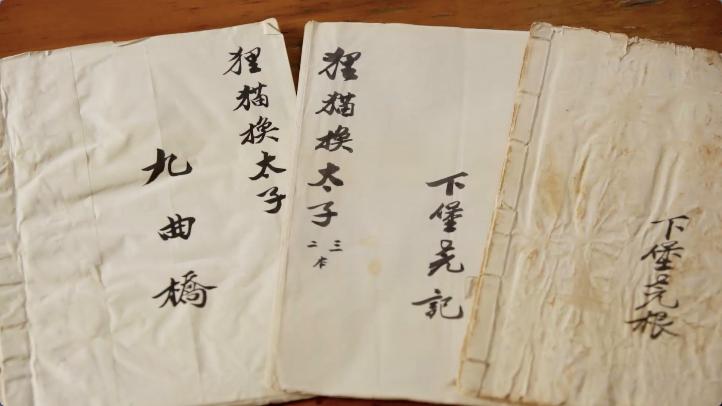 狸猫换太子
九曲橋
狸猫换太子
二三本
下堡記
下堡根